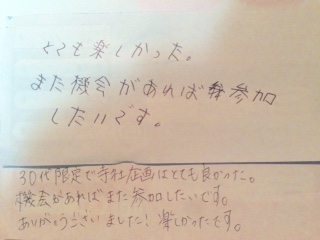 とても楽しかった。
また機会があれば参加
したいです。
30代限定で寺社企画はとても良かった。
機会があればまた参加したいです。
ありがとうございました!楽しかったです。